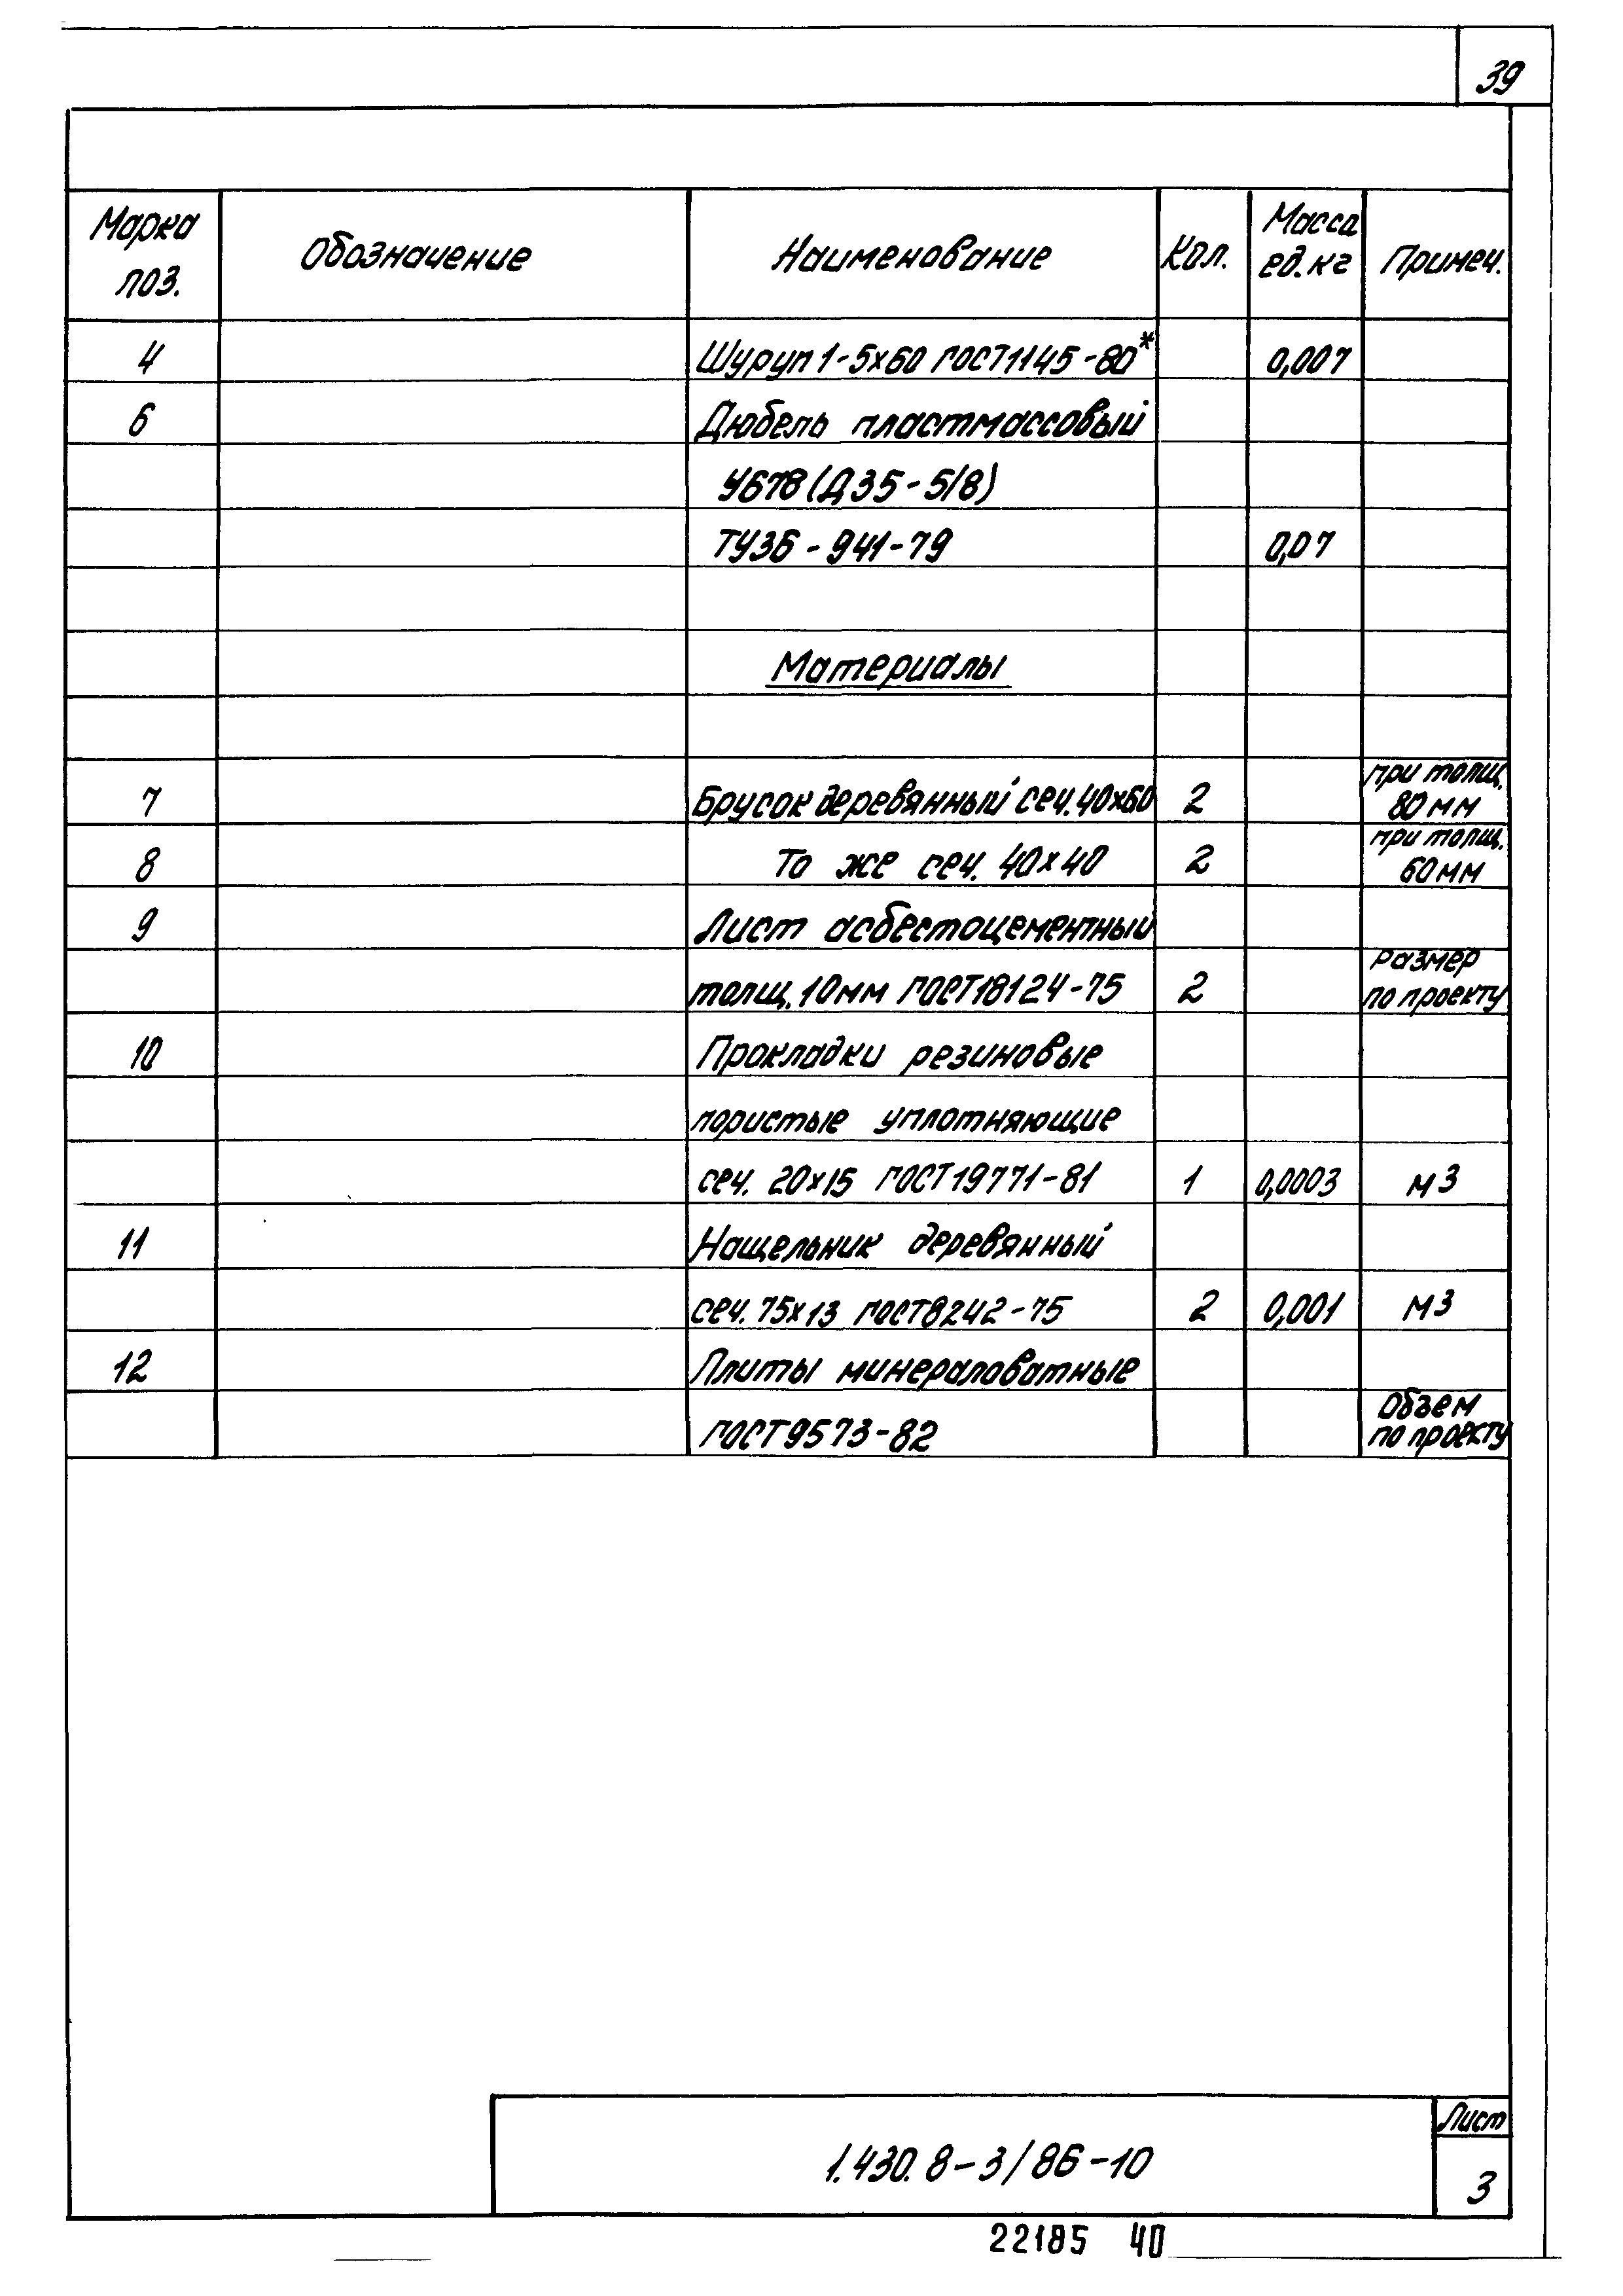 39
Марка поз. Обозначение Наименование Кол. Масса ед.кг Примеч.
4 Шуруп 1-5х60 ГОСТ1145-80* 0,007
6 Дюбель пластмассовый
У678(Д35-5/8)
ТУ36-941-79 0,07
Материалы
7 Брусок деревянный сеч.40х60 2 при толщ. 80мм
8 То же сеч. 40х40 2 при толщ. 60мм
9 Лист асбестоцементный
толщ.10мм ГОСТ18124-75 2 Размер по проекту
10 Прокладки резиновые
пористые уплотняющие
сеч. 20х15 ГОСТ19771-81 1 0,0003 м3
11 Нащельник деревянный
сеч.75х13 ГОСТ8242-75 2 0,001 м3
12 Плиты минераловатные
ГОСТ9573-82 Объем по проекту
1.430.8-3/86-10
Лист
3
22185 40